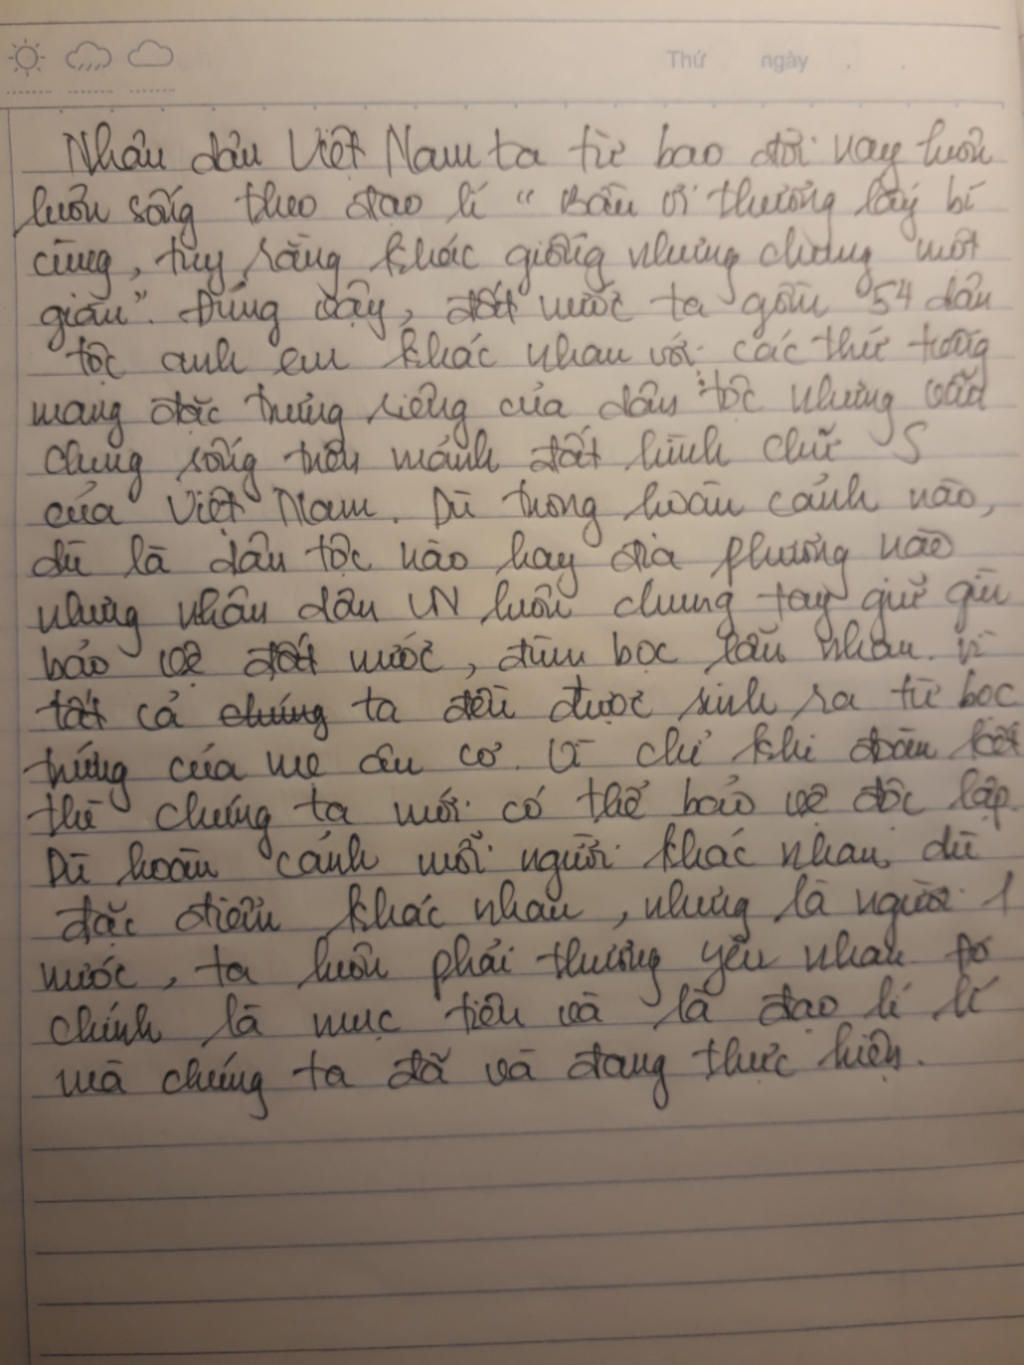 Thứ ngày
Nhân dân Việt Nam ta từ bao đời nay luôn
luôn sống theo đạo lí " Bầu ơi thương lấy bí
cùng, tuy rằng khác giống nhưng chung một
giàn". Đúng vậy, đất nước ta gồm 54 dân
tộc anh em khác nhau với các thứ tiếng
mang đặc trưng riêng của dân tộc nhưng vẫn
chung sống trên mảnh đất hình chữ S
của Việt Nam. Dù trong hoàn cảnh nào,
dù là dân tộc nào hay địa phương nào
nhưng nhân dân VN luôn chung tay giữ gìn
bảo vệ đất nước, đùm bọc lẫn nhau. Vì
tất cả chúng ta đều được sinh ra từ bọc
trứng của mẹ âu cơ. Vì chỉ khi đoàn kết
thì chúng ta mới có thể bảo vệ độc lập.
Dù hoàn cảnh mỗi người khác nhau, dù
đặc điểm khác nhau, nhưng là người 1
nước, ta luôn phải thương yêu nhau. Đó
chính là mục tiêu và là đạo lí lí
mà chúng ta đã và đang thực hiện.